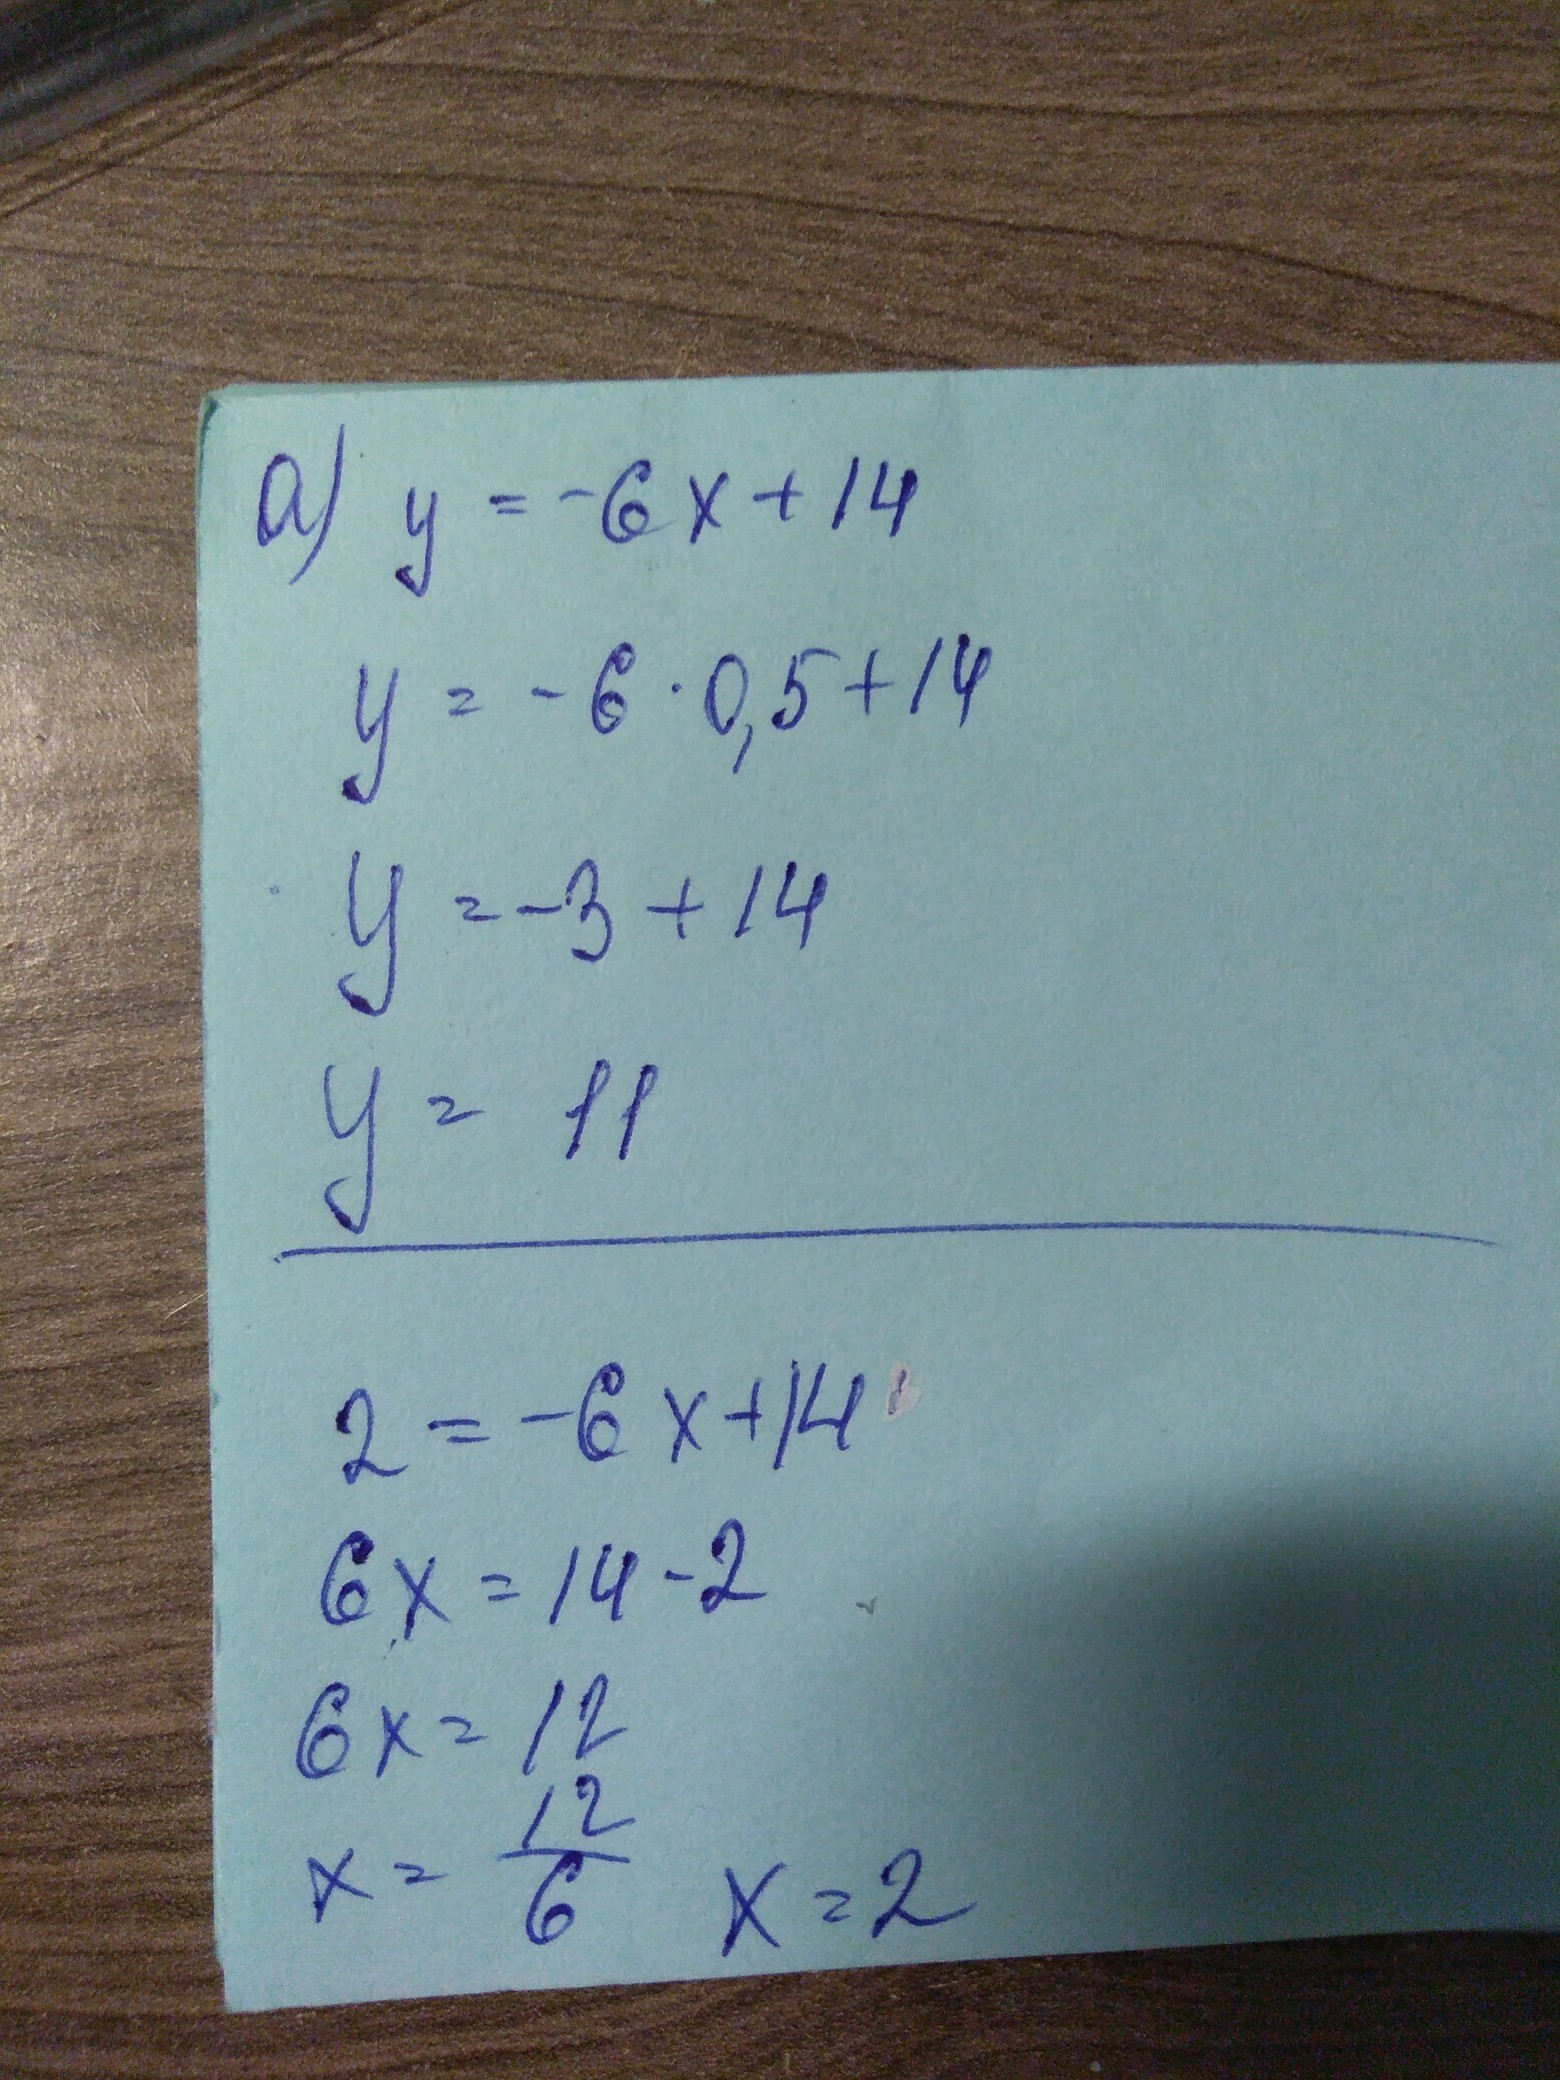 а) y = -6x + 14
y = -6 · 0,5 + 14
y = -3 + 14
y = 11
2 = -6x + 14
6x = 14 - 2
6x = 12
x = 12/6 x = 2